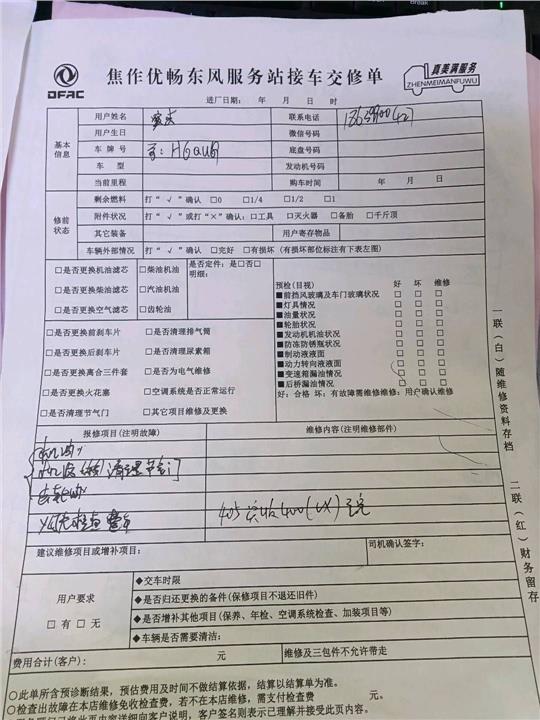 DFAC
焦作优畅东风服务站接车交修单
真美满服务
ZHENMEIMANFUWU
进厂日期: 年 月 日 时
基本信息
用户姓名
联系电话
用户生日
微信号码
车牌号
底盘号码
车型
发动机号码
当前里程
购车时间 年 月 日
修前状态
剩余燃料 打“√”确认 □0 □1/4 □1/2 □1
附件状况 打“√”或打“×”确认:□工具 □灭火器 □备胎 □千斤顶
其它装备
用户寄存物品
车辆外部情况 打“√”确认 □完好 □有损坏(有损坏部位标注有下表左图)
□是否更换机油滤芯 □柴油机油
是否定件:是□否□
明细:
□是否更换柴油滤芯 □汽油机油
□是否更换空气滤芯 □齿轮油
□是否更换前刹车片 □是否清理排气筒
□是否更换后刹车片 □是否清理尿素箱
□是否更换离合三件套 □是否为电气维修
□是否更换火花塞 □空调系统是否正常运行
□是否清理节气门 □其它项目维修及更换
预检(目视) 好 坏 维修
■前挡风玻璃及车门玻璃状况 □ □ □
■灯具情况 □ □ □
■油量状况 □ □ □
■轮胎状况 □ □ □
■发动机机油状况 □ □ □
■防冻防锈瓶状况 □ □ □
■制动液液面 □ □ □
■动力转向液液面 □ □ □
■变速箱漏油情况 □ □ □
■后桥漏油情况 □ □ □
好:合格 坏:有故障需维修维修:用户确认维修
报修项目(注明故障)
维修内容(注明维修部件)
清理节气门
建议维修项目或增补项目:
司机确认签字:
用户要求
□有 □无
◆交车时限
◆是否归还更换的备件(保修项目不退还旧件)
◆是否增补其他项目(保养、年检、空调系统检查、加装项目等)
◆车辆是否需要清洁:
费用合计(客户): 元
维修及三包件不允许带走
○此单所含预诊断结果,预估费用及时间不做结算依据,结算以结算单为准。
○检查出故障在本店维修免收检查费,若不在本店维修,需支付检查费 元。
一联(白)随维修资料存档
二联(红)财务留存